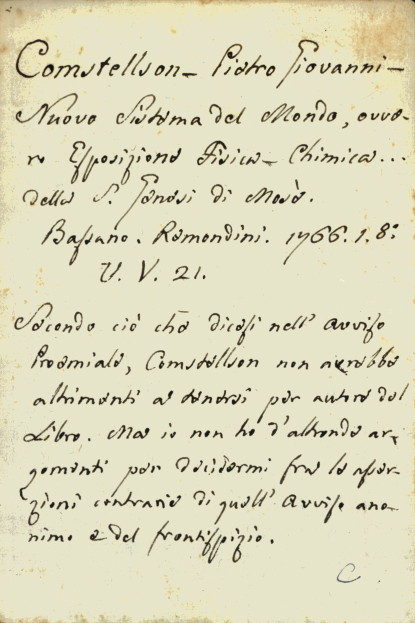 Comstellson – Pietro Giovanni –
Nuovo Sistema del Mondo, ovve-
ro Esposizione Fisico – Chimica...
della S. Genesi di Mosè.
Bassano. Remondini. 1766. 1. 8:
U. V. 21.
Secondo ciò che dicesi nell' avviso
Proemiale, Comstellson non avrebbe
altrimenti a tenersi per autore del
Libro. Ma io non ho d'altronde ar-
gomenti per decidermi fra le asser-
zioni contrarie di quell' avviso ano-
nimo e del frontispizio.
C.